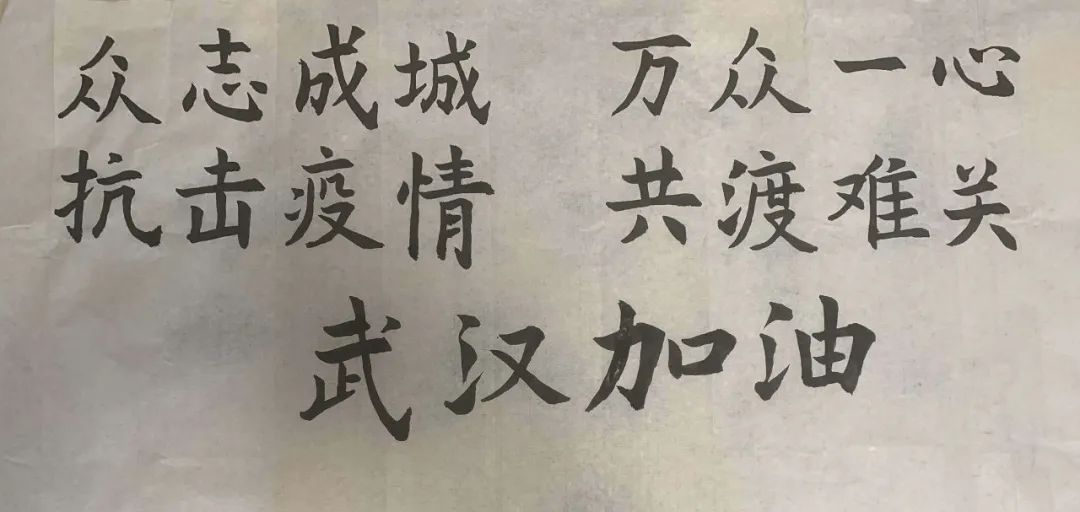 众志成城 万众一心
抗击疫情 共渡难关
武汉加油